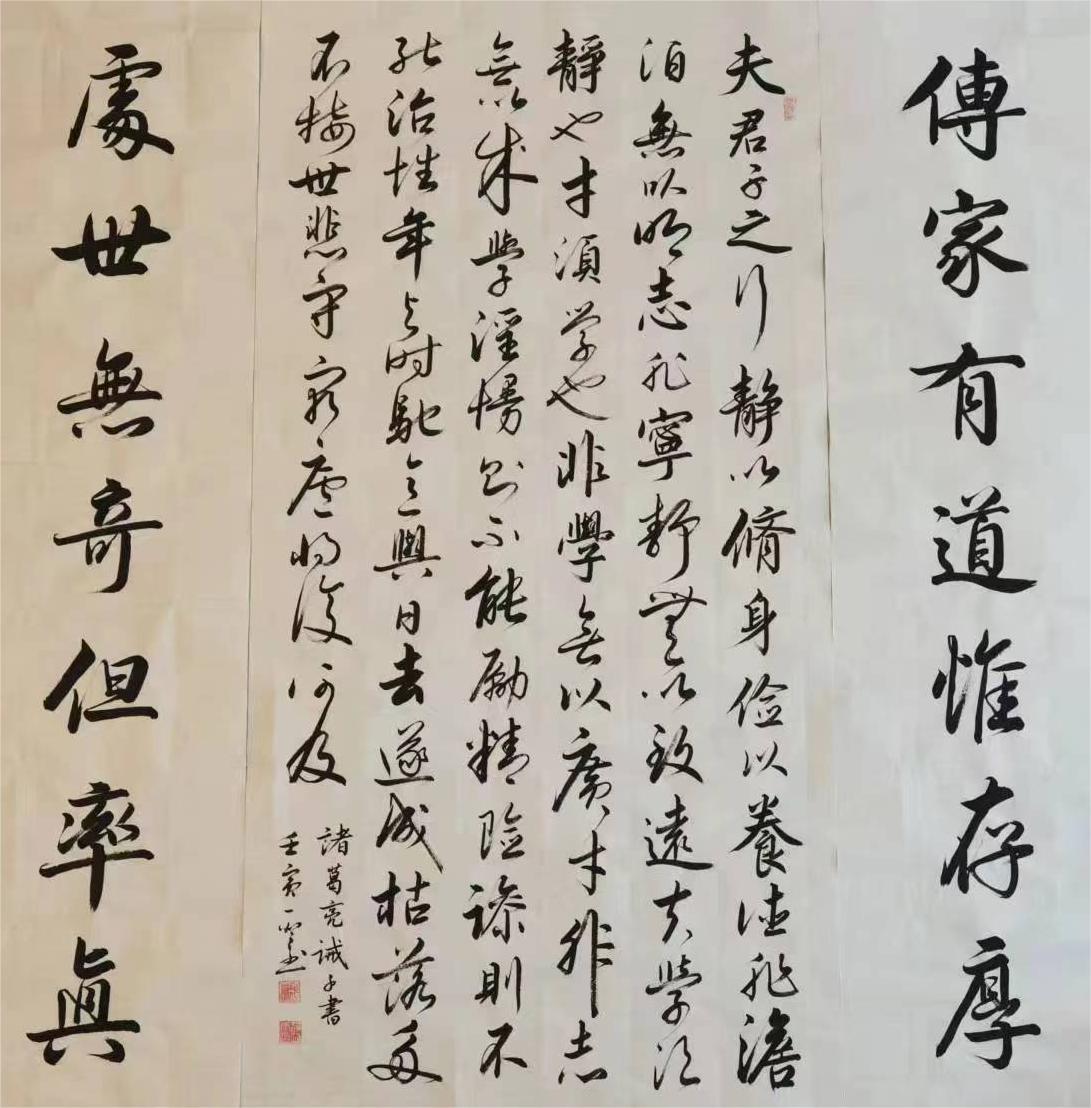 傳家有道惟存厚
夫君子之行靜以脩身俭以養德非澹
泊無以明志非寧靜無以致遠夫學須
靜也才須学也非學無以廣才非志
無以成學淫慢則不能勵精险躁則不
能治性年与时馳意與日去遂成枯落多
不接世悲守窮廬將復何及
諸葛亮誡子書
壬寅
處世無奇但率眞